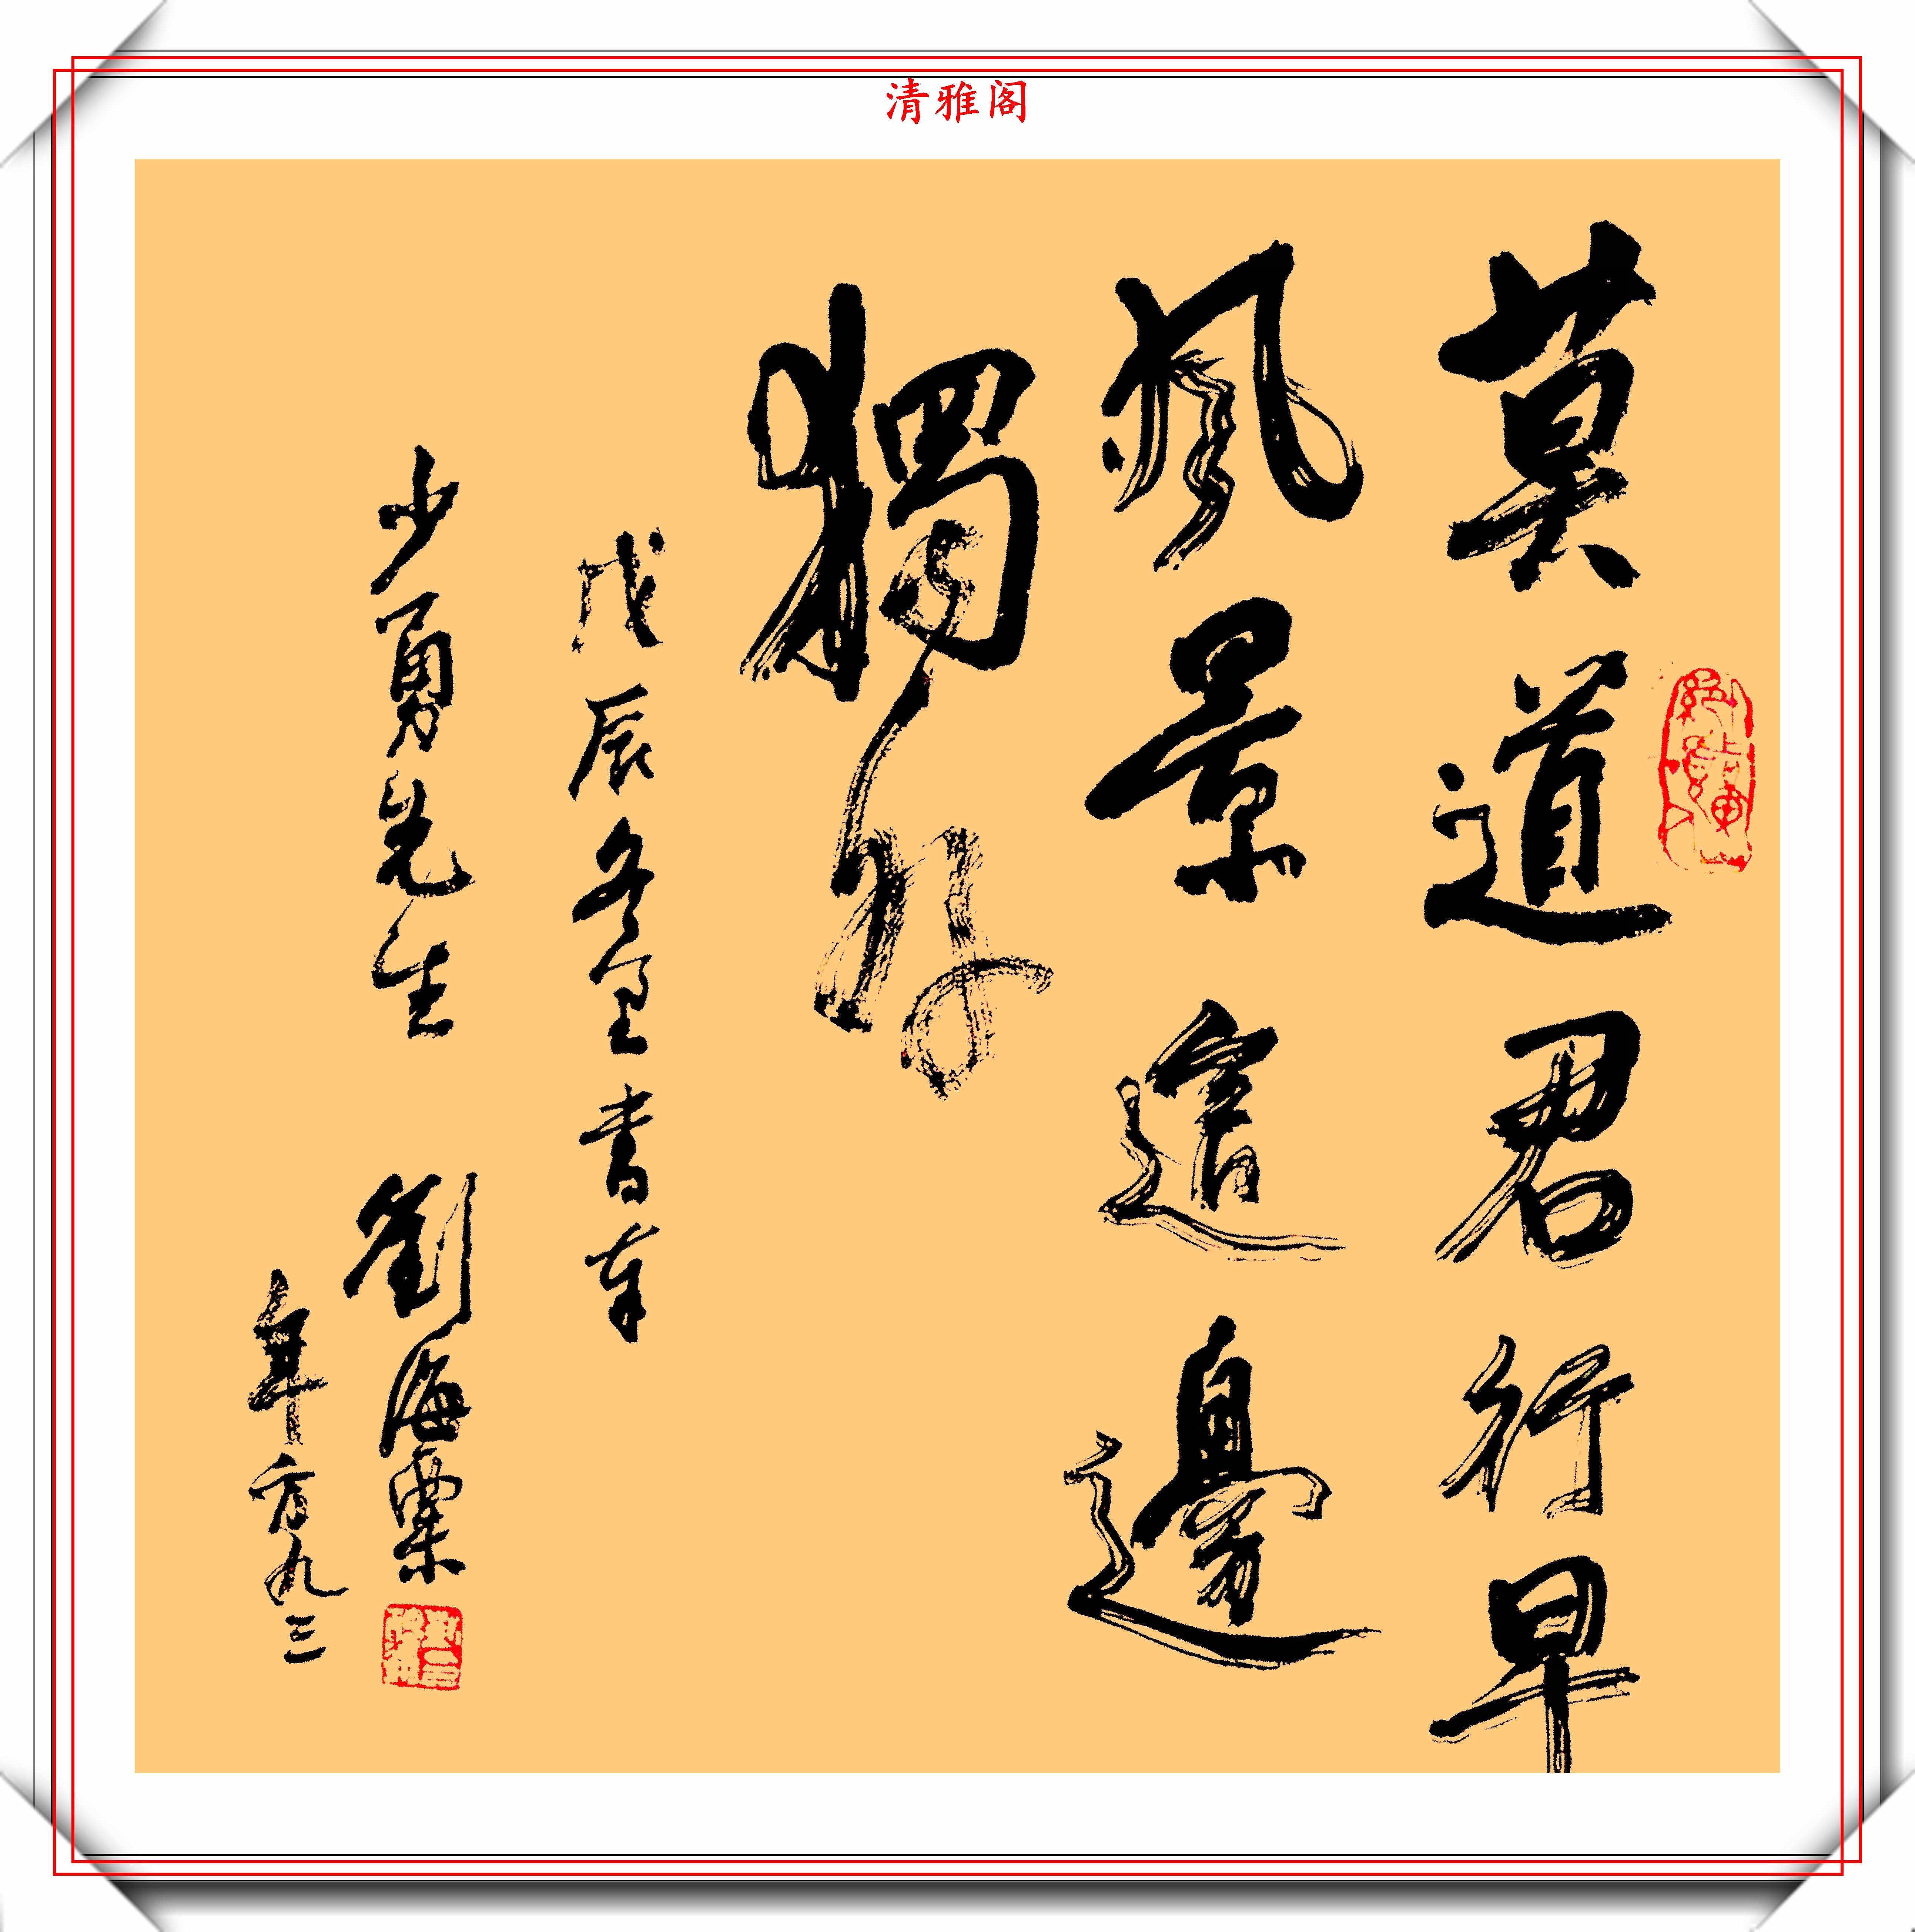 清雅阁
莫道君行早
風景這邊
獨好
戊辰冬至書奉
少勇先生 劉海粟
年方九三